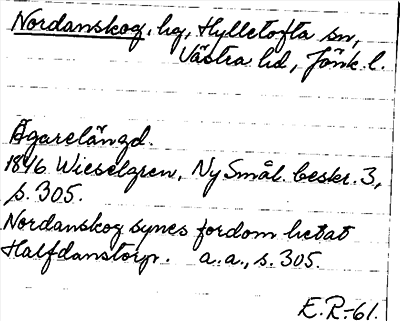 Nordanskog, hg, Hylletofta sn,
Västra hd, Jönk. l.
Ägarelängd.
1846 Wieselgren, Ny Smål. beskr. 3,
s. 305.
Nordanskog synes fordom hetat
Halfdanstorp. a.a., s. 305.
E.R-61.